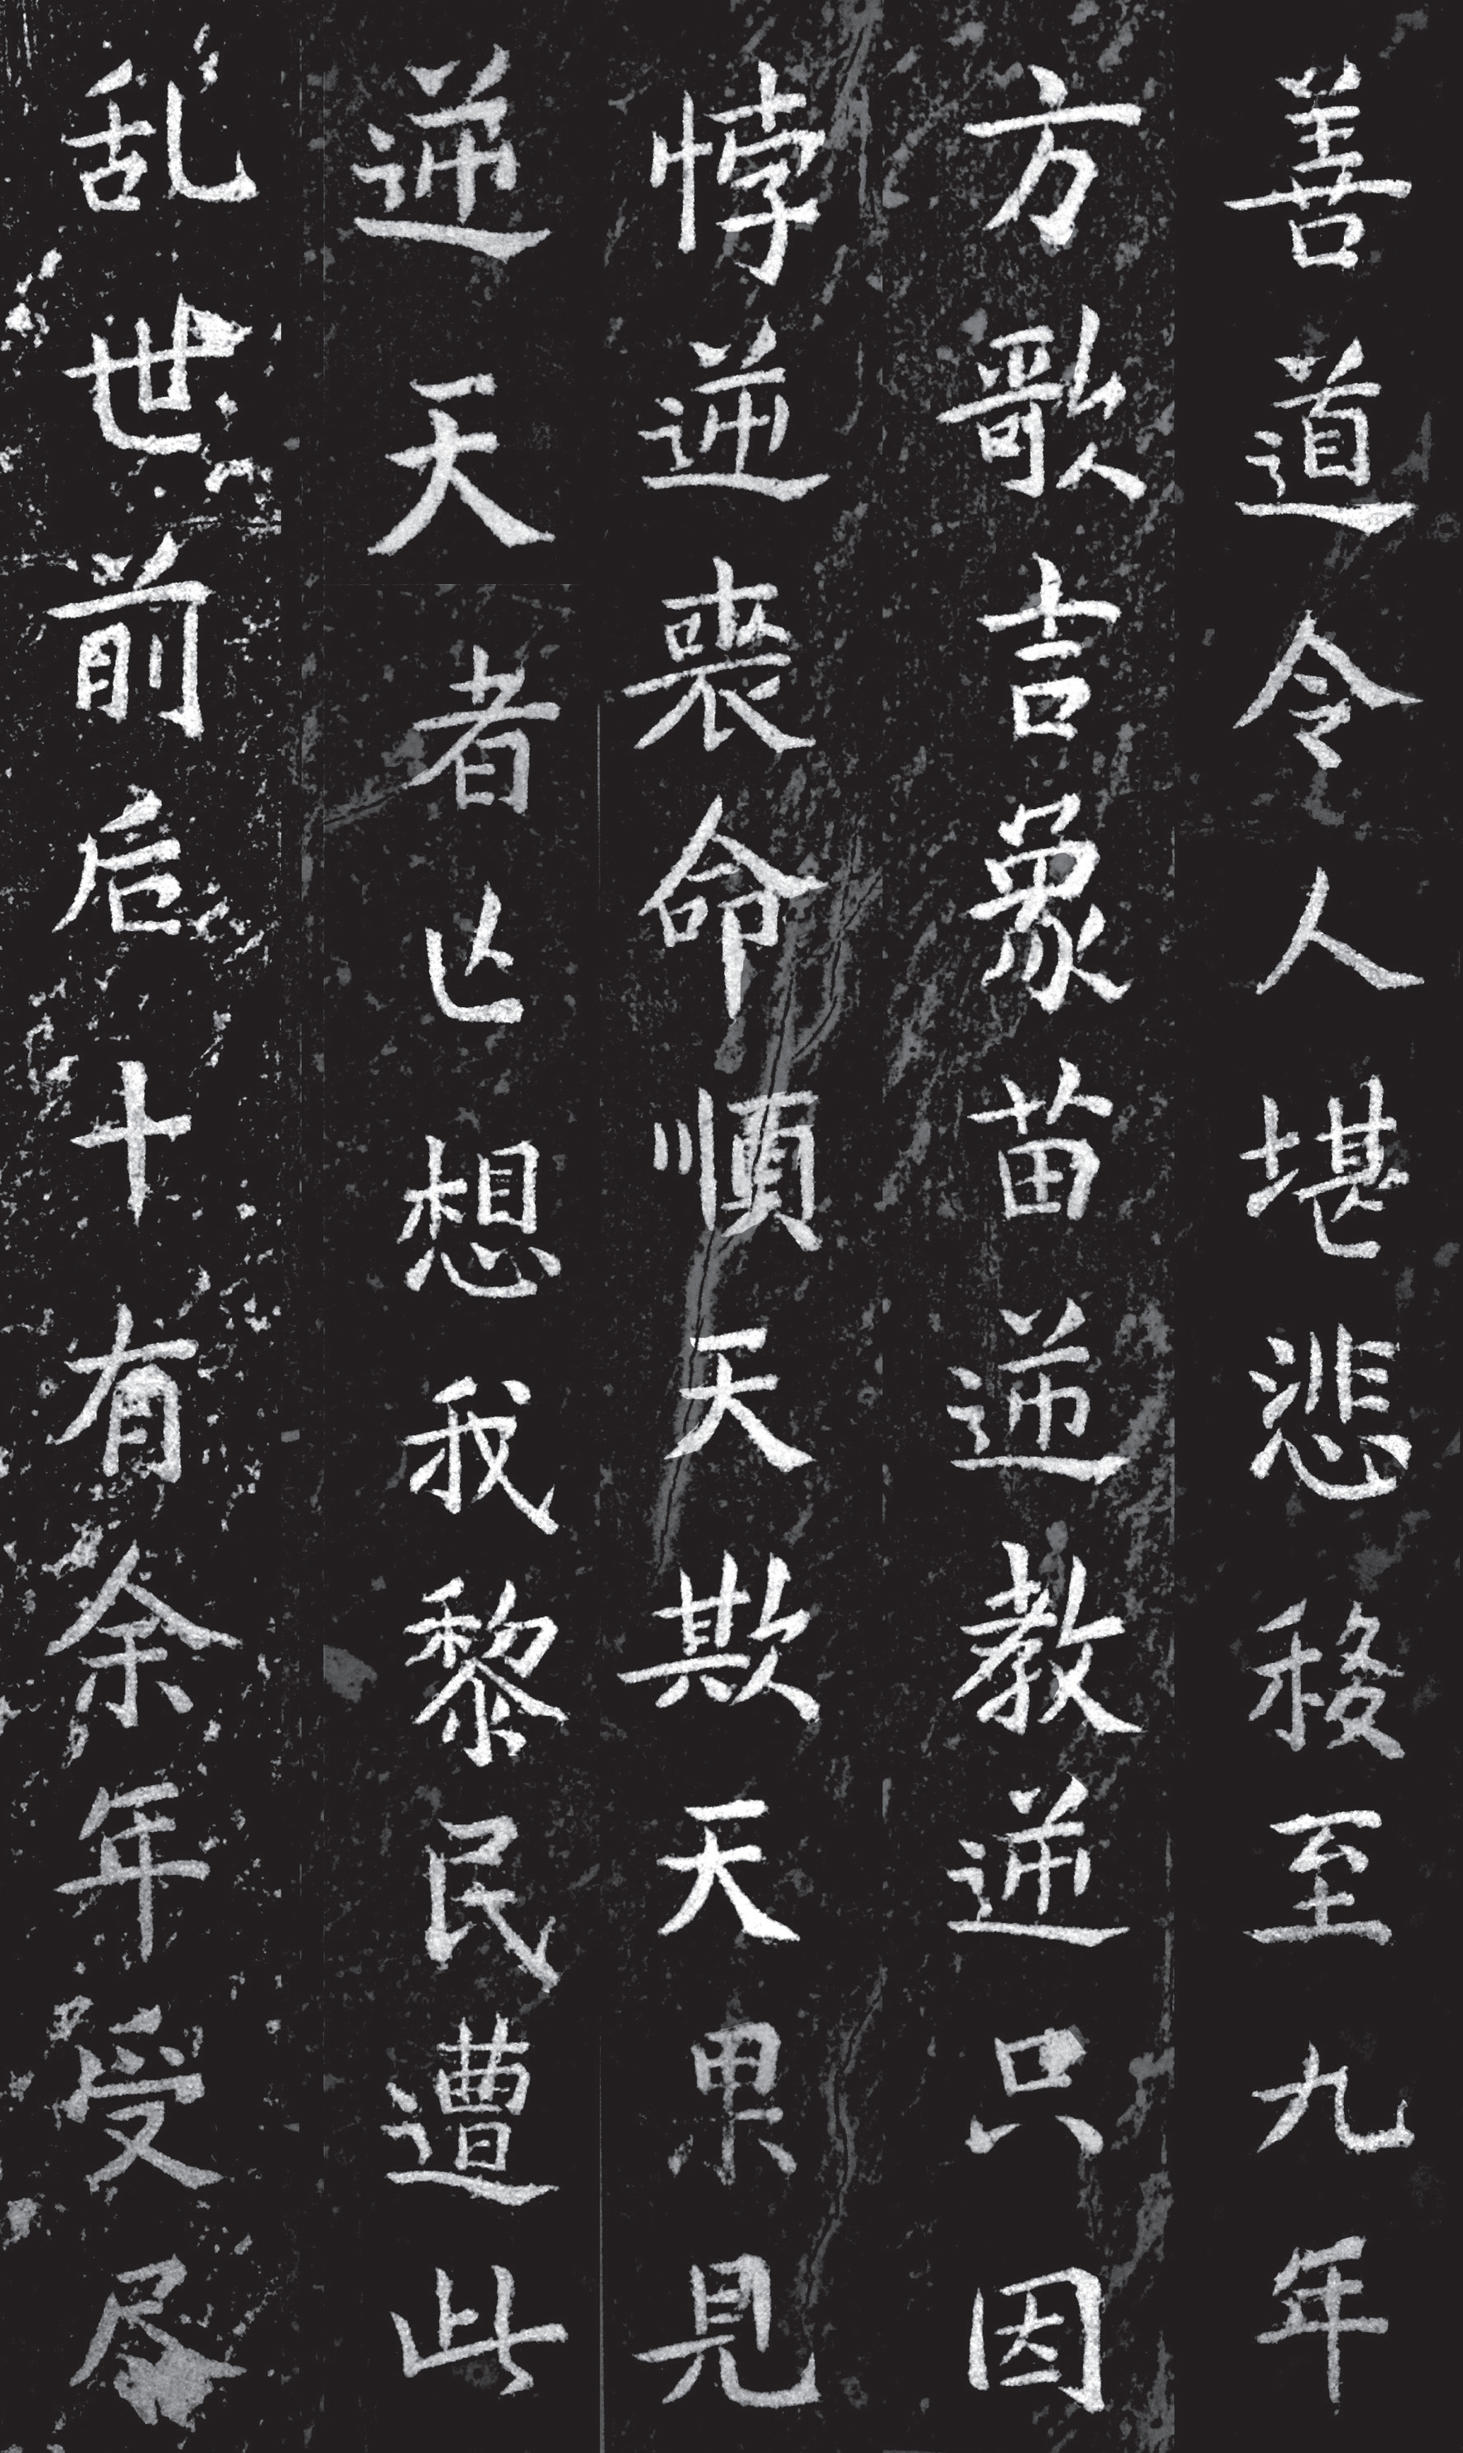 善道令人堪悲移至九年
方歌吉象苗逆教逆只因
悖逆丧命順天欺天果見
逆天者亡想我黎民遭此
乱世前后十有余年受尽